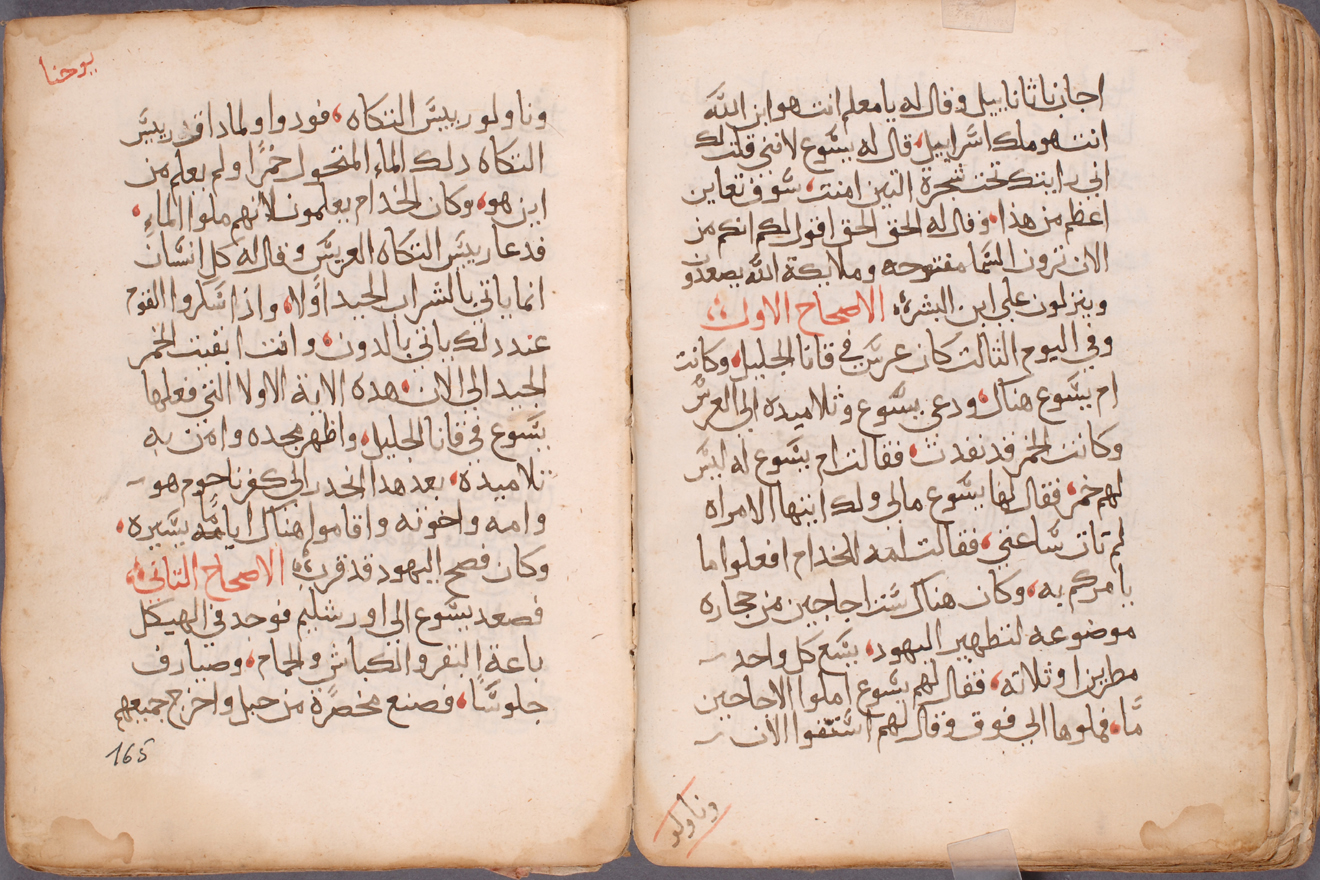 اجاب ناثانابيل وقال له يا معلم انت هو ابن الله
انت هو ملك اسراييل، قال له يسوع لانني قلت لك
اني رايتك تحت شجرة التين امنت، سوف تعاين
اعظم من هذا، وقال له الحق الحق اقول لكم انكم من
الان ترون السما مفتوحه وملايكة الله يصعدون
وينزلون علي ابن البشره الاصحاح الاول
وفي اليوم الثالت كان عرس في قانا الجليل، وكانت
ام يسوع هناك، ودعي يسوع وتلاميده الي العرس
وكانت الخمر قد نفدت، فقالت ام يسوع له ليس
لهم خمر، فقال لها يسوع مالي ولك ايتها الامراه
لم تات ساعتي، فقالت امه للخدام افعلوا ما
يامركم به، وكان هناك ست اجاجين من حجاره
موضوعه لتطهير اليهود، يسع كل واحد
مطرين او ثلاثه، فقال لهم يسوع املوا الاجاجين
مًا، فملوها الي فوق وقال لهم استقوا الان
وناولو
يوحنا
وناولو رييس التكاه، فودوا ولما داق رييس
التكاه دلك الماء المتحول خمرًا ولم يعلم من
اين هو، وكان الخدام يعلمون لانهم ملوا الماء،
فدعا رييس التكاه العريس وقال له كل انسان
انما ياتي بالشراب الجيد اولا، واذا سكروا القوم
عند دلك ياتي بالدون، وانت ابقيت الخمر
الجيد الي الان، هده الاية الاولا التي فعلها
يسوع في قانا الجليل، واظهر مجده وامن به
تلاميدة، بعد هدا انحدر الي كفرناحوم هو
وامه واخوته واقاموا هناك ايامه يسيره،
وكان فصح اليهود قد قرب الاصحاح التاني
فصعد يسوع الي اورشليم فوجد في الهيكل
باعة البقر والكباش والحمام، وصيارف
جلوسًا، فصنع مخصرة من حبل واخرج جميعهم
165